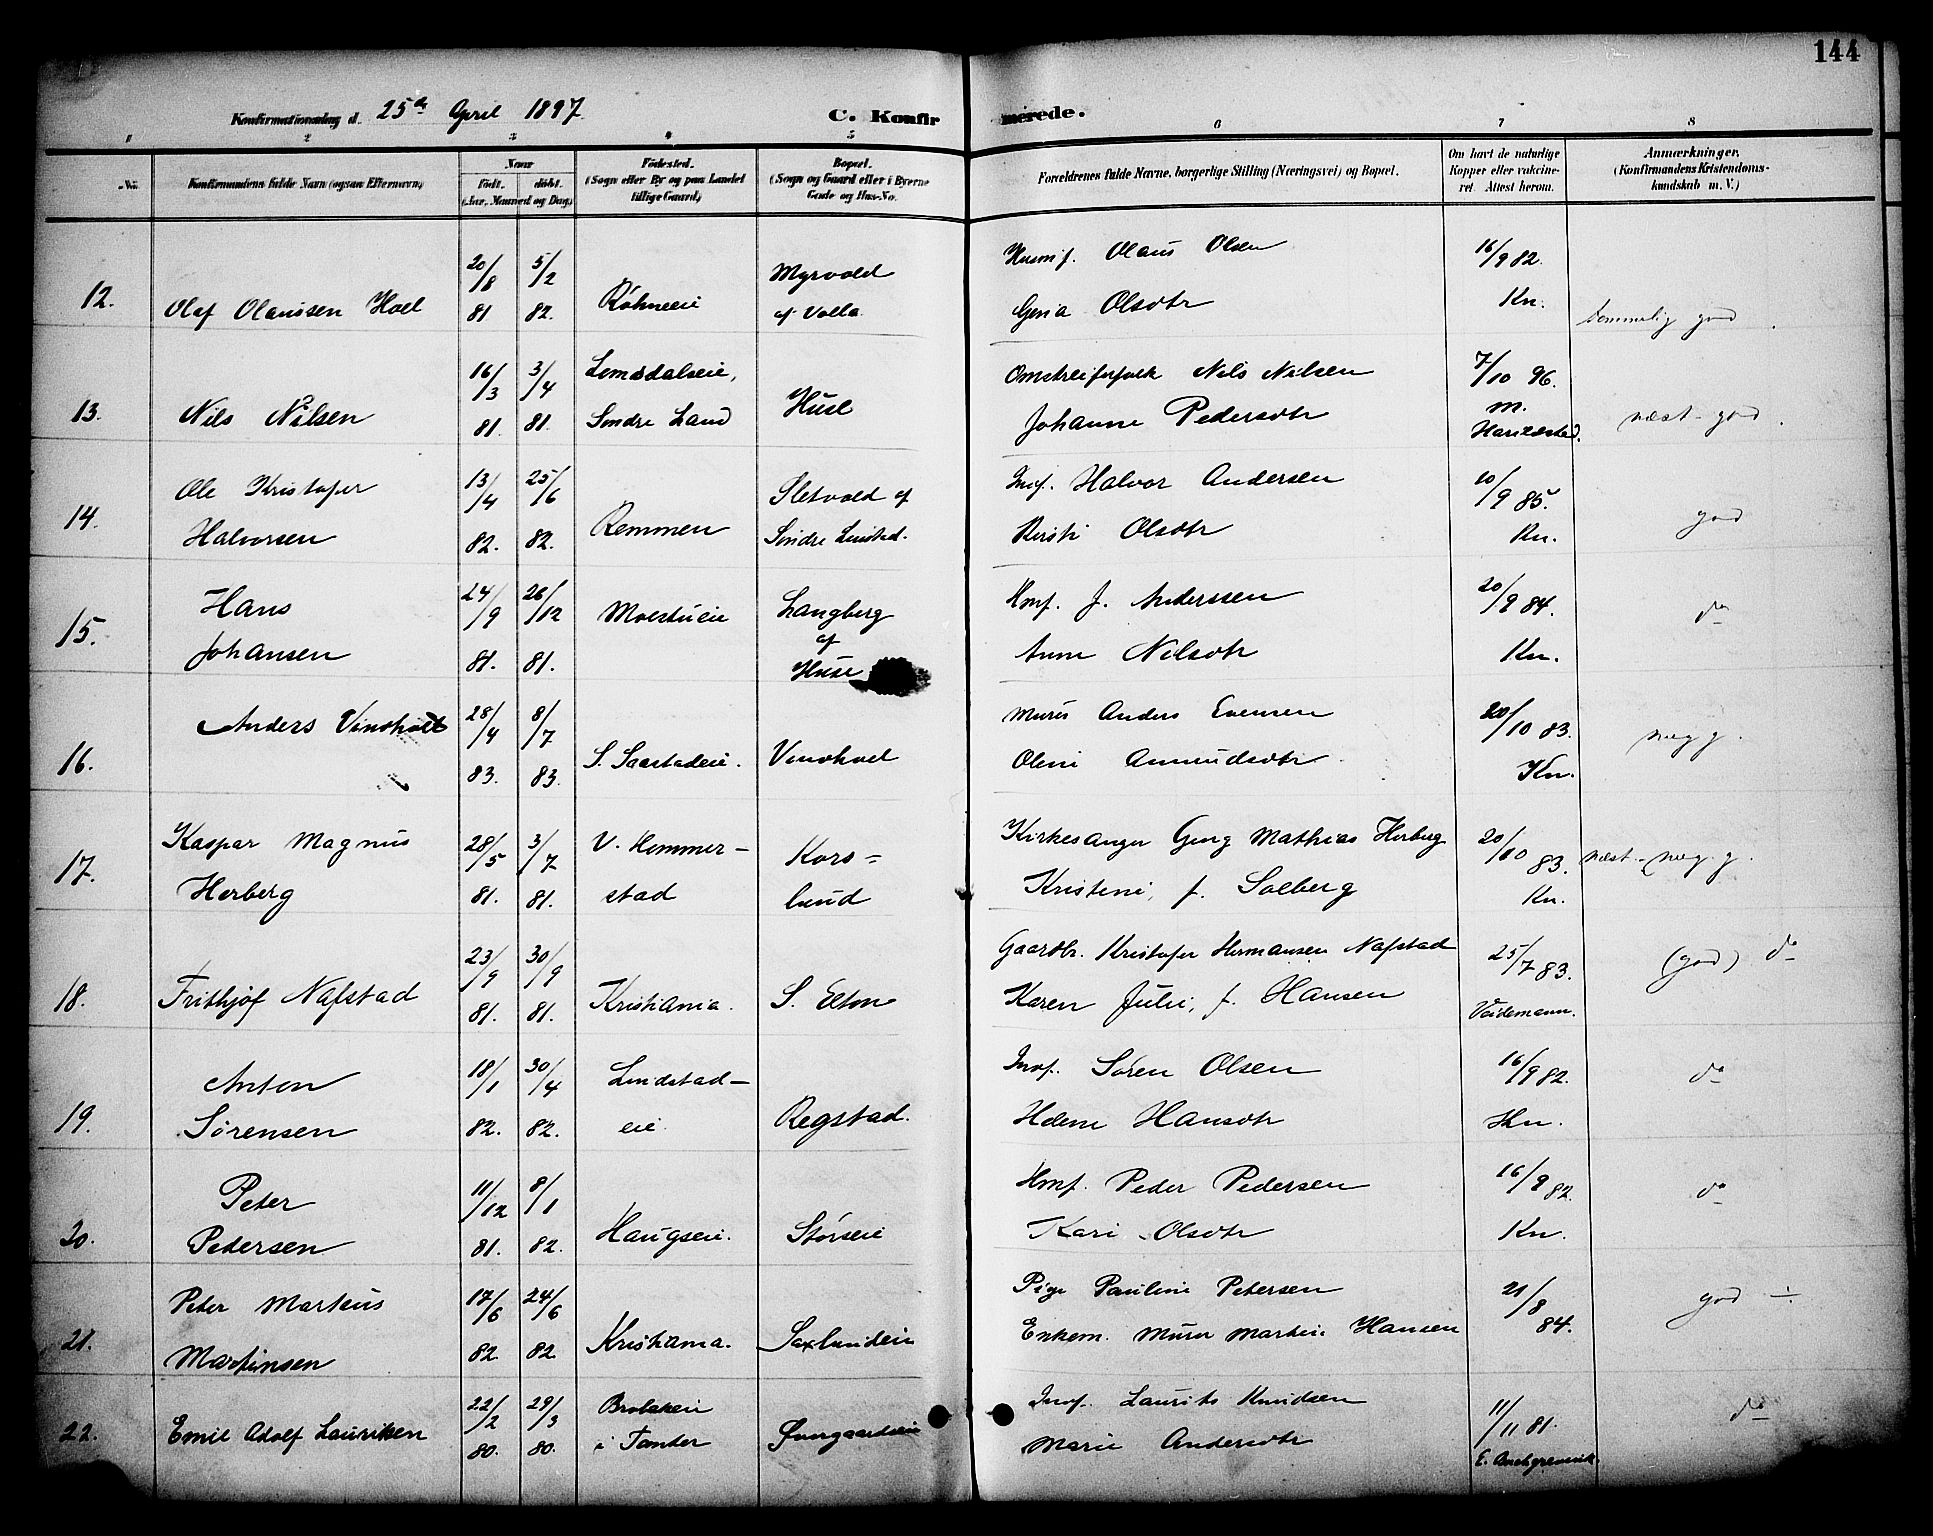 144
Konfirmationsdag d. 25de April 1897.
C. Konfirmerede.
1 2 3 4 5 6 7 8
No.
Konfirmandens fulde Navn (ogsaa Efternavn)
Naar
født. døbt.
(Aar, Maaned og Dag)
Fødested.
(Sogn eller By og paa Landet
tillige Gaard)
Bopæl.
(Sogn og Gaard eller i Byerne
Gade og Hus-No.
Forældrenes fulde Navne, borgerlige Stilling (Næringsvei) og Bopæl.
Om havt de naturlige
Kopper eller vaccine-
ret. Attest herom.
Anmærkninger.
(Konfirmandens Kristendoms-
kundskab m. V.)
12. Olaf Olaussen Hoel
20/8 81 5/2 82.
Røhneeie
Myrvold
af Volla
Husmf. Olaus Olsen
Olsdtr
16/9 82.
Kn.
temmelig god
13. Nils Nilsen
16/3 81. 3/4 81.
Lomsdalseie,
Søndre Land
Huse
Omstreiferfolk Nils Nilsen
Johanne Pedersdtr
7/10 96.
m.
næst-god
14. Ole Kristofer
Halvorsen
13/4 82. 25/6 82.
Remmen
Sletvold af
Søndre Linstad.
Indf. Halvor Andersen
Kirsti Olsdtr
10/9 85.
Kn.
god
15. Hans
Johansen
24/9 81. 26/12 81.
Moestueie
Langberg
af
Huse
Hmf. J. Anderssen
Anne Nilsdtr
20/9 84.
Kn.
do
16. Anders Vindhol
28/4 83. 8/7 83.
S. Saastadeie.
Vindhol
Murer Anders Evensen
Oline Amundsdtr
20/10 83.
Kn.
meg g.
17. Kaspar Magnus
Herberg
28/5 81. 3/7 81.
V. Hommer-
stad
Kors=
lund
Kirkesanger Georg Mathias Herberg
Kristine, f. Solberg
20/10 83.
Kn.
næst-meg g.
18. Frithjof Nafstad
23/9 81. 30/9 81.
Kristiania.
S. Elton
Gaardbr. Kristofer Hermansen Nafstad
Karen Julie, f. Hansen
25/7 83.
Voidemann.
(god) do
19. Anton
Sørensen
18/1 82. 30/4 82.
Lindstad-
eie.
Røgstad.
Indf. Søren Olsen
Helene Hansdtr
16/9 82.
Kn.
do
20. Peter
Pedersen
11/12 81. 8/1 82.
Haugseie.
Størseie
Hmf. Peder Pedersen
Kari Olsdtr
16/9 82.
Kn.
do
21. Peter Marteus
Martinsen
17/6 82. 24/6 82.
Kristiania.
Saxlundeie
Pige Pauline Petersen
Enkem. Murer Martin Hansen
21/8 84.
god ÷
22. Emil Adolf Lauritsen
22/2 80. 29/3 80.
i Tomter
Indf. Laurits Knudsen
Marie Andersdtr
11/11 81.
do